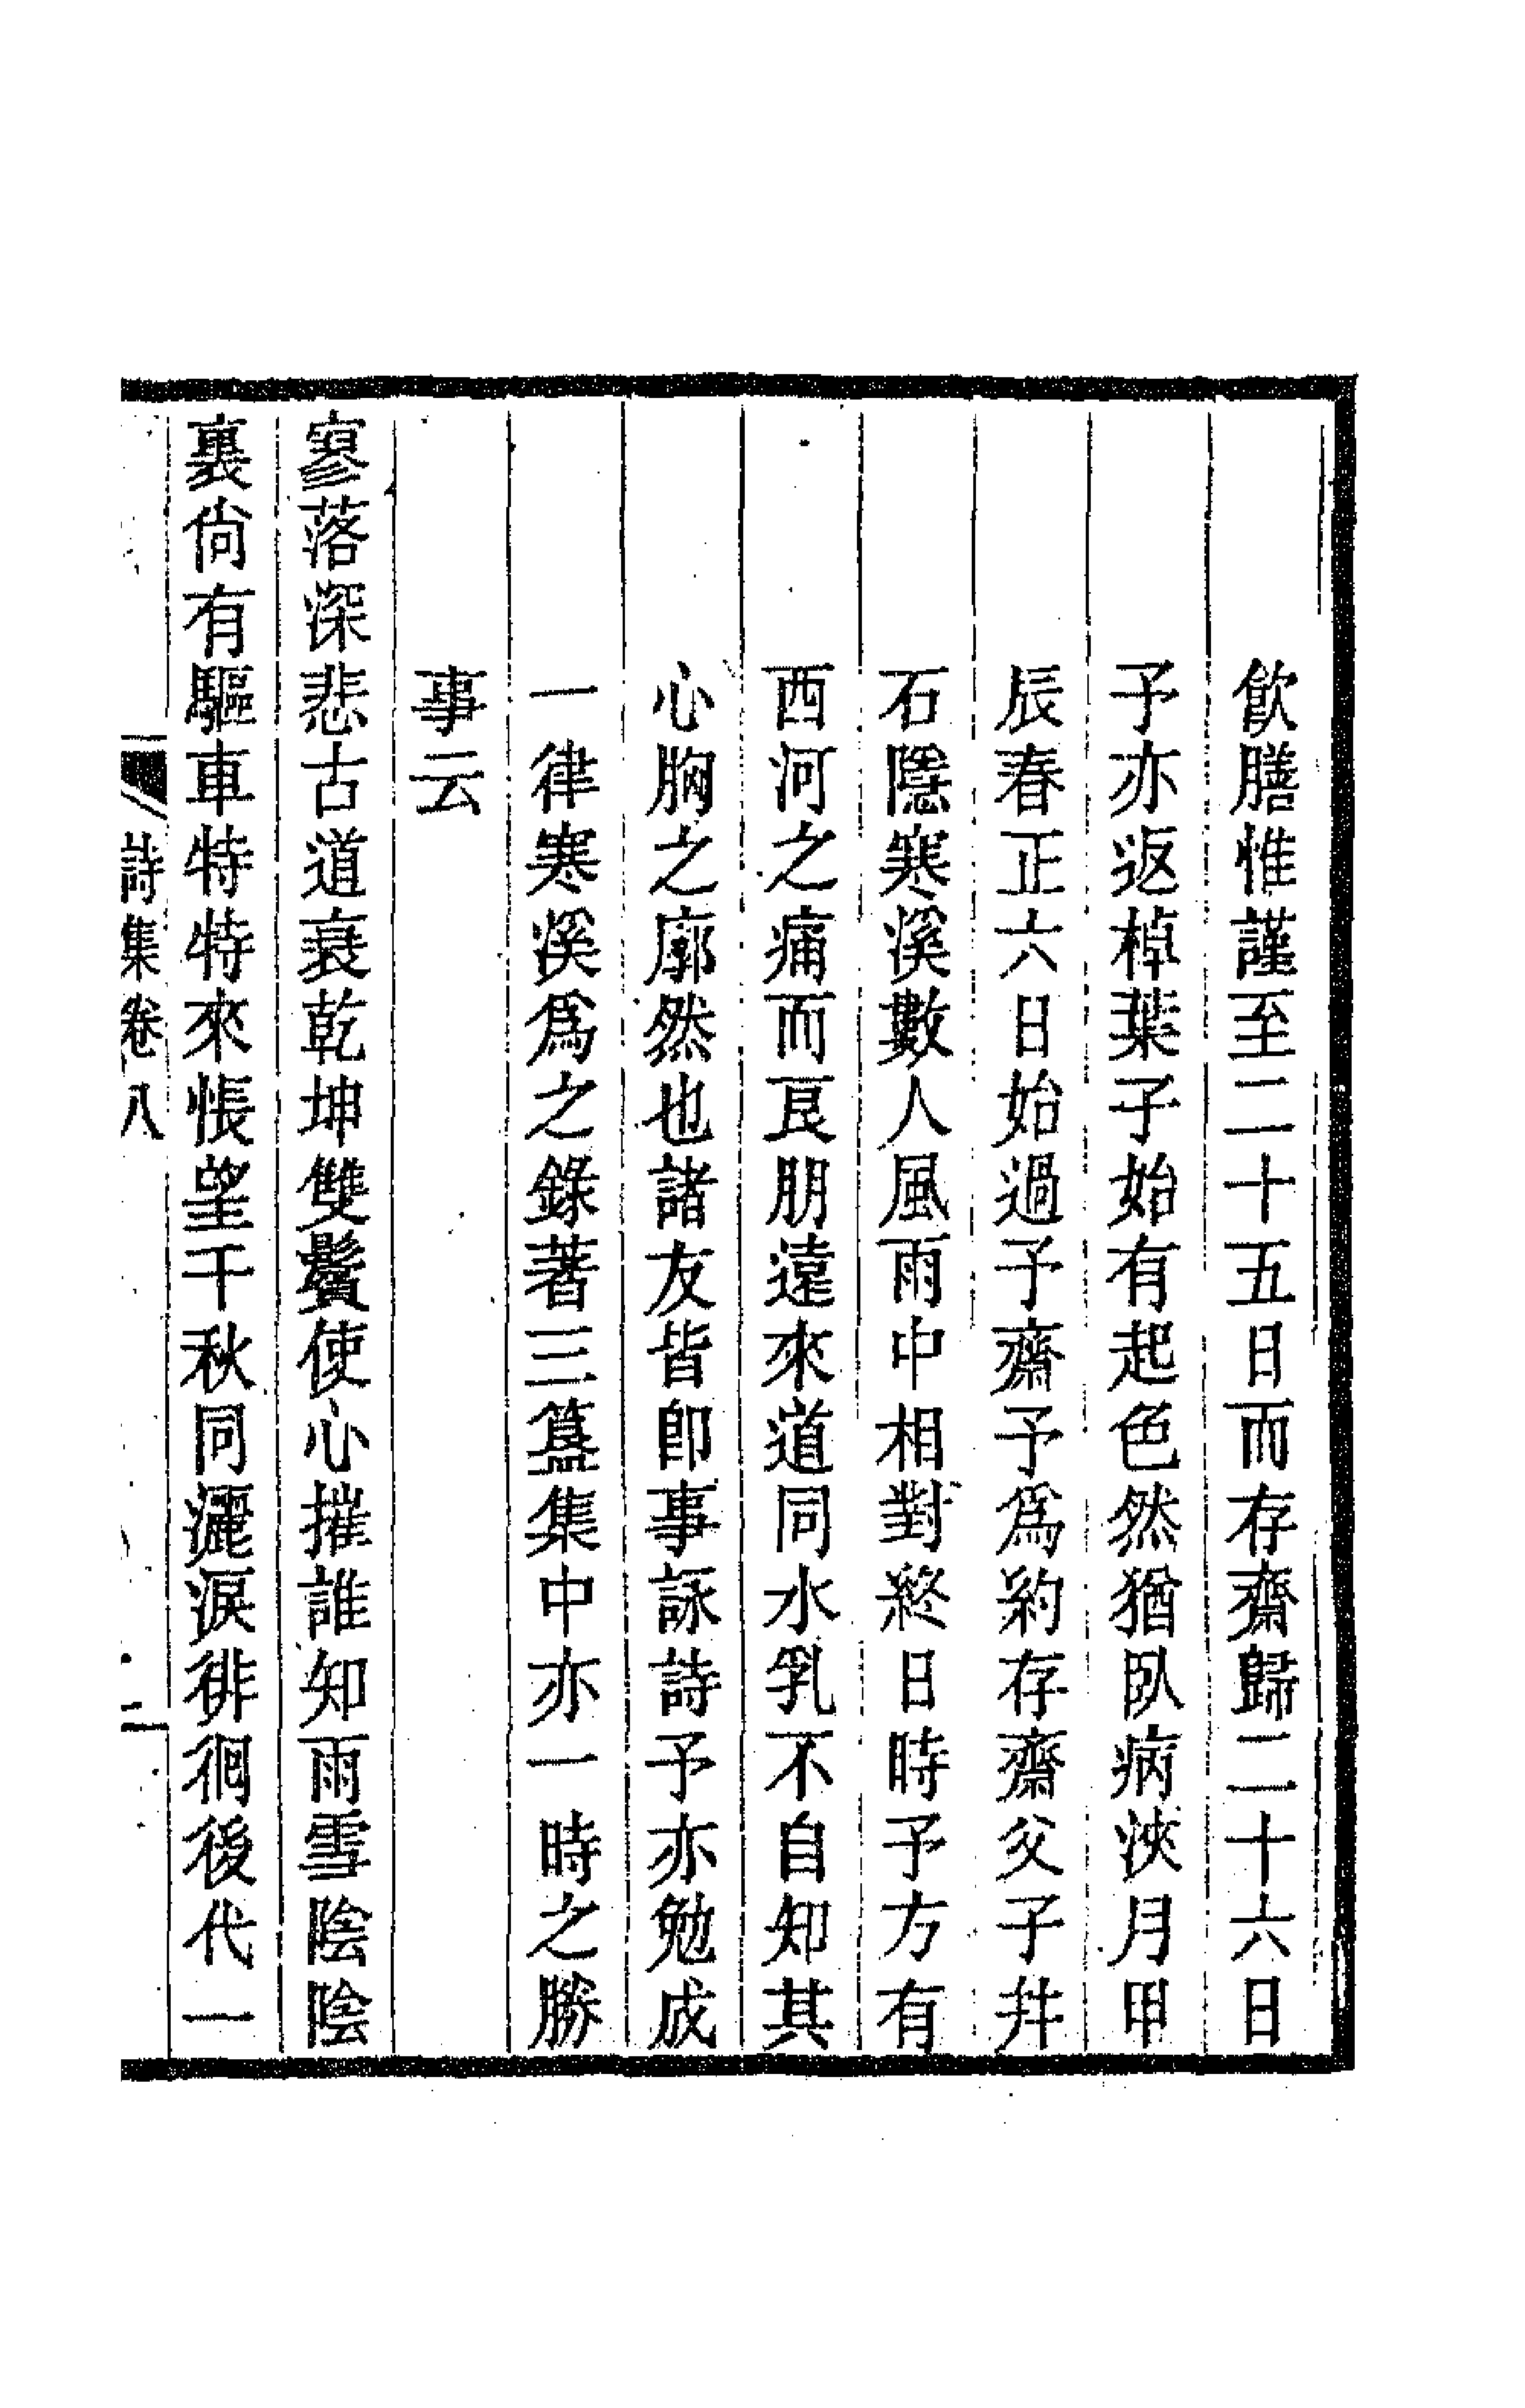 飲膳惟謹至二十五日而存齋歸二十六日
予亦返棹葉子始有起色然猶臥病浹月甲
辰春正六日始過予齋予爲約存齋父子幷
石隱寒溪數人風雨中相對終日時予方有
西河之痛而良朋遠來道同水乳不自知其
心胸之廓然也諸友皆卽事詠詩予亦勉成
一律寒溪爲之錄著三簋集中亦一時之勝
事云
寥落深悲古道衰乾坤雙鬢使心摧誰知雨雪陰陰
裏尙有驅車特特來悵望千秋同灑淚徘徊後代一
詩集卷八 二